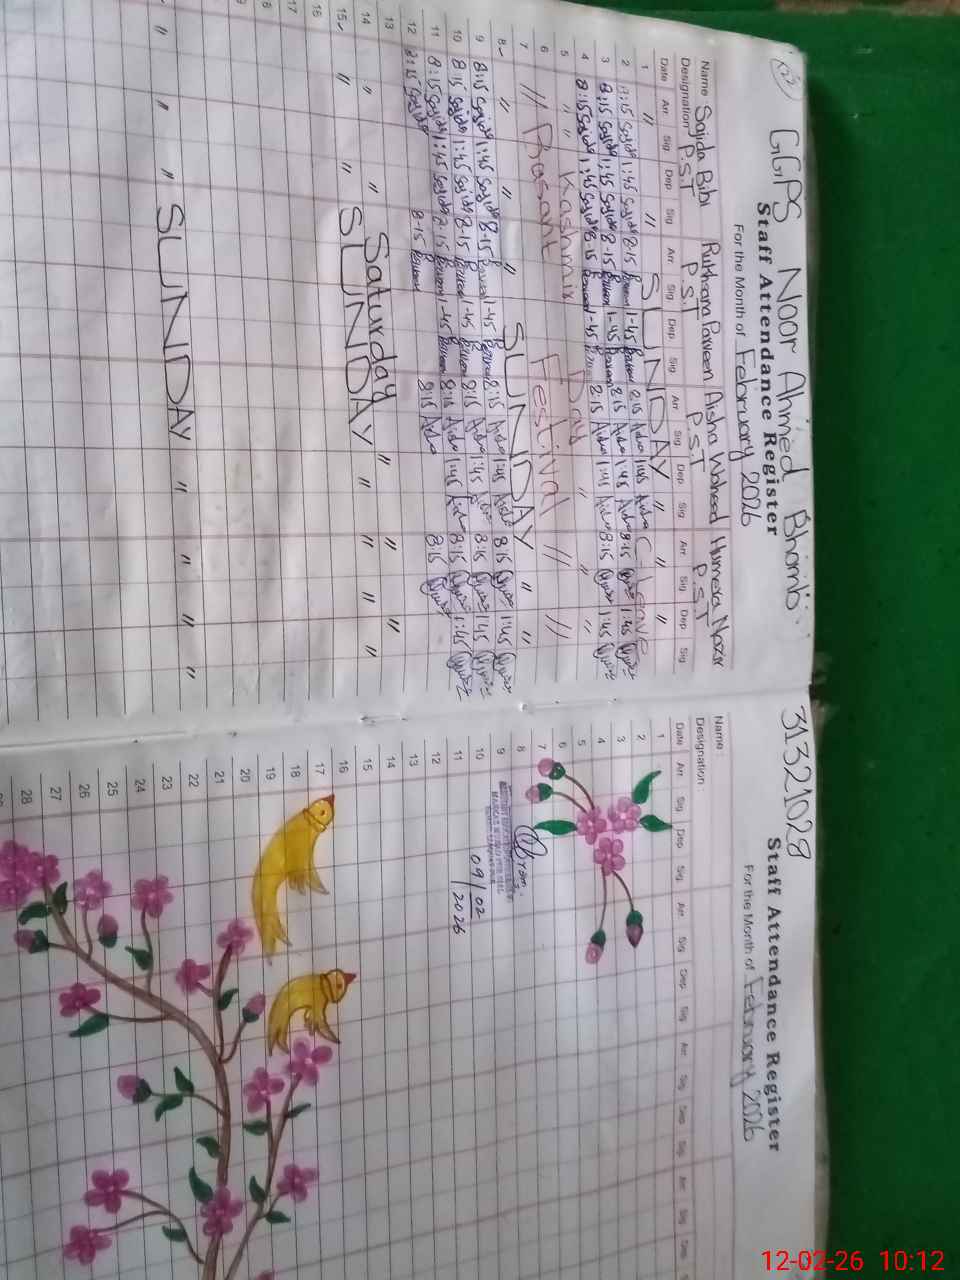 GGPS Noor Ahmed Bhamb
Staff Attendance Register
For the Month of February 2026
Name Sajida Bibi Rukhsana Parveen Aisha Waheed Humera Nazir
Designation P.S.T P.S.T P.S.T P.S.T
Date Arr Sig Dep Sig Arr Sig Dep Sig Arr Sig Dep Sig Arr Sig Dep Sig
1 " " SUNDAY " " "
2 8:15 Sajida 1:45 Sajida 8-15 1-45 8:15 1:45 C-Leave
3 8:15 Sajida 1:45 Sajida 8-15 1-45 8:15 1:45 8:15 1:45
4 8:15 Sajida 1:45 Sajida 8-15 1-45 8:15 1:45 8:15 1:45
5 " " Kashmir Day " " "
6 // Basant Festival // //
7
8 " " " SUNDAY " "
9 8:15 Sajida 1:45 Sajida 8-15 1-45 8:15 1:45 8:15 1:45
10 8:15 Sajida 1:45 Sajida 8-15 1-45 8:15 1:45 8:15 1:45
11 8:15 Sajida 1:45 Sajida 8-15 1-45 8:15 1:45 8:15 1:45
12 8:15 Sajida 8-15 8:15 8:15
13
14 " " Saturday " " "
15 " " SUNDAY " " " "
16
17
" " " SUNDAY " " " "
31321028
Staff Attendance Register
For the Month of February 2026
Name :
Designation :
Date Arr Sig Dep Sig Arr Sig Dep Sig Arr Sig Dep Sig Arr Sig Dep
1
2
3
4
5
6
7
8
9
10
09/02
11
2026
12
13
14
15
16
17
18
19
20
21
22
23
24
25
26
27
28
12-02-26 10:12